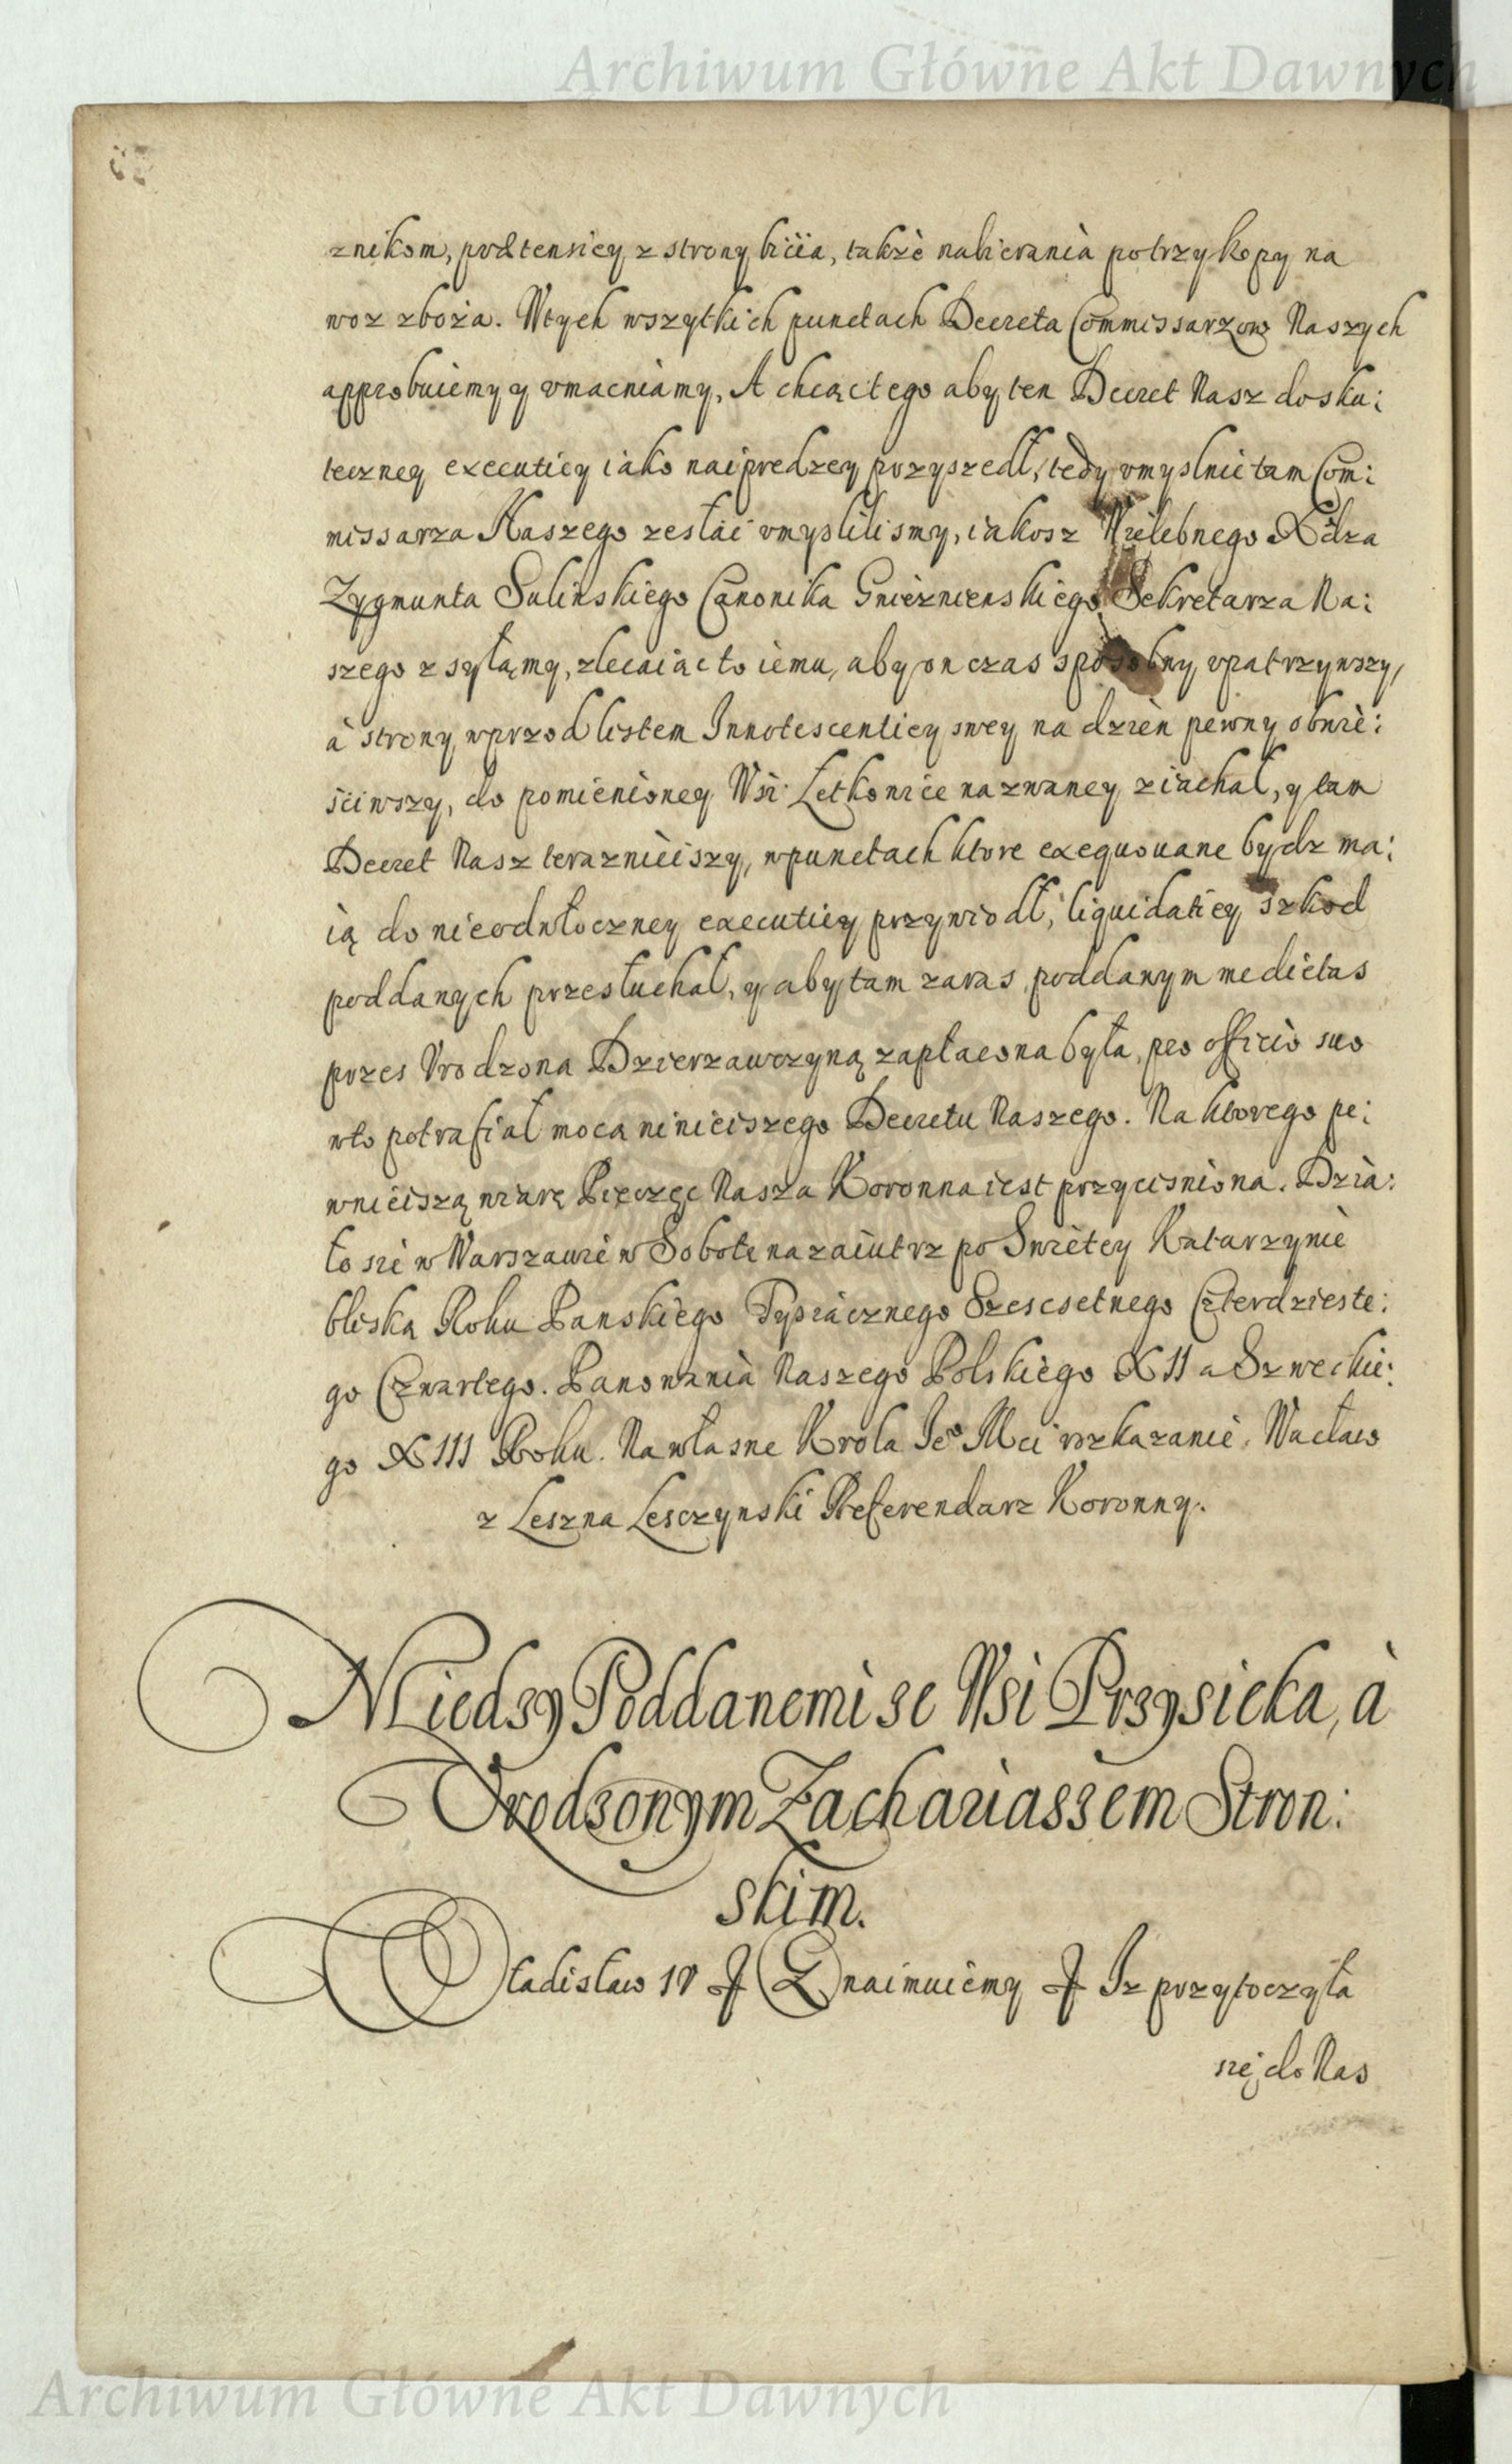 Archiwum Główne Akt Dawnych
znikom, prætensiey z strony bicia, takżè nabieranià potrzy kopy na
woz zboża. Wtych wszytkich punctach Decreta Commissarzow Naszych
approbuiemy y vmacniamy, A chcąc tego aby ten Decret Nasz dosku:
teczney executiey iako naipredzey przyszedł, tedy vmyslnie tam Com:
missarza Naszego zesłać vmyslilismy, iakosz Wielebnego Xdza
Zygmunta Sulinskiego Canonika Gnieznienskiego Sekretarza Na:
szego zsyłamy, zlecaiąc to iemu, aby on czas sposobny vpatrzywszy,
à strony wprzod listem Innotescentiey swey na dzièn pewny obwiè:
sciwszy, do pomienioney Wsi Letkowice nazwaney ziachał, y tam
Decret Nasz terazniéiszy, wpunctach ktore exequowane bydz ma:
ią do nieodwłoczney executiey przywiodł, liquidatiey szkod
poddanych przesłuchał, y aby tam zaras poddanym medietas
przes Vrodzona Dzierzawczyną zapłacona była, pro officio suo
wto potrafiał moca ninieiszego Decretu Naszego. Na ktorego pe:
wnieiszą wiarę Pieczęc Nasza Koronna iest przycisniona. Dzia:
ło sie w Warszawie w Sobote nazaiutrz po Swietey Katarzynie
bliską Roku Panskiego Tysiącznego Szescsetnego Czterdzieste:
go Czwartego. Panowanià Naszego Polskiégo XII a Szweckie:
go XIII Roku. Na własne Krola Jeº Mci rozkazanie. Wacław
z Leszna Lesczynski Referendarz Koronny.
Miedzy Poddanemi ze Wsi Przysieka, à
Vrodzonym Zachariaszem Stron:
skim.
Władisław IV Znaimuiemy Iz przytoczyła
się do Nas
Archiwum Główne Akt Dawnych